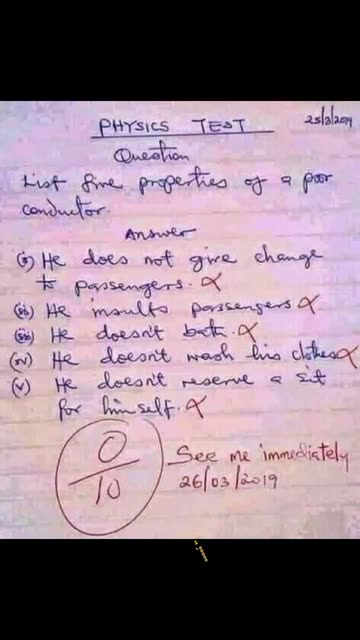 PHYSICS TEST
25/3/2019
Question
List five properties of a poor
conductor.
Answer
(i) He does not give change
to passengers. X
(ii) He insults passengers X
(iii) He doesn't bath. X
(iv) He doesn't wash his clothes X
(v) He doesn't reserve a sit
for himself. X
0
10
See me immediately
26/03/2019